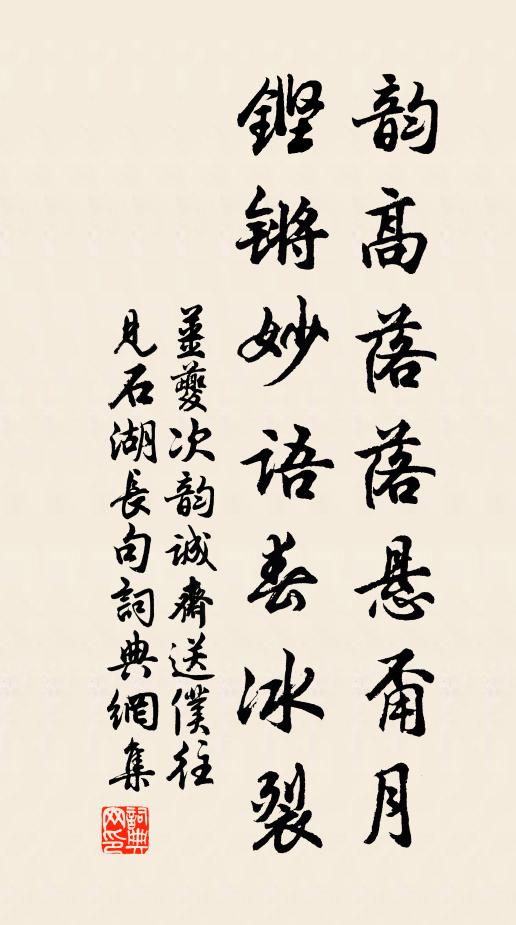 韵高落落悬月
鏗锵妙语春冰裂
薑夔次韵诚齋送僕往
見石湖長句詞典網集
詞典